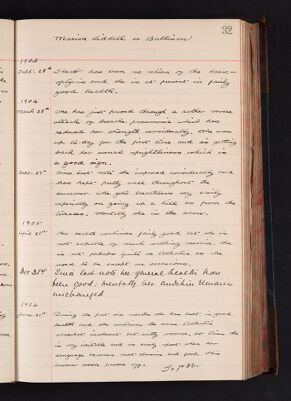 32
Marion Liddell or Battison
1903
Sept. 28th There has been no return of the haemo-
and she is at present in fairly
good health.
1904
March 28th She has just passed through a rather severe
attack of pneumonia which has
reduced her strength considerably. She was
up to-day for the first time and is getting
back her usual which is
a good sign.
Since last note she improved considerably and
has kept pretty well throughout the
summer. She gets breathless very easily
especially on going up a hill as from the
mentally she is the same.
1905
Her health continues fairly good but she is
not capable of much exercise. She
is not perhaps quite so as she
used to be except on occasions.
Dec 31st Since last note her general health has
been good: mentally her condition remains
unchanged.
1906
During the past six months she has kept in good
health and she continues the same
but witty woman. At times she
is very irritable and is easily upset when her
language becomes most abusive and foul. This
soon passes off. To p.